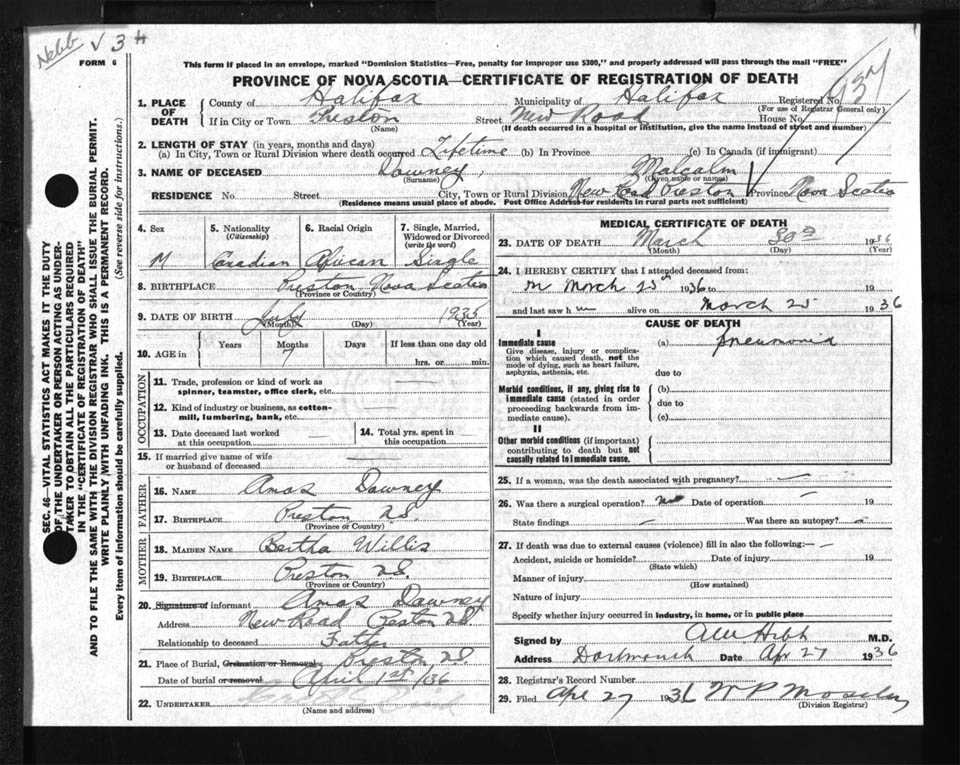 Webb √ 3
FORM 6
This form if placed in an envelope, marked "Dominion Statistics—Free, penalty for improper use $300," and properly addressed will pass through the mail "FREE"
PROVINCE OF NOVA SCOTIA—CERTIFICATE OF REGISTRATION OF DEATH
1. PLACE OF DEATH
County of Halifax Municipality of Halifax Registered No. 937
(For use of Registrar General only)
If in City or Town Preston Street New Road House No.
(Name) (If death occurred in a hospital or institution, give the name instead of street and number)
2. LENGTH OF STAY (in years, months and days)
(a) In City, Town or Rural Division where death occurred Lifetime (b) In Province (c) In Canada (if immigrant)
3. NAME OF DECEASED Downey, Malcolm
(Surname) (Given name or names)
RESIDENCE No. Street City, Town or Rural Division New Road Preston Province Nova Scotia
(Residence means usual place of abode. Post Office Address for residents in rural parts not sufficient)
4. Sex
M
5. Nationality
(Citizenship)
Canadian
6. Racial Origin
African
7. Single, Married,
Widowed or Divorced
(write the word)
Single
8. BIRTHPLACE Preston Nova Scotia
(Province or Country)
9. DATE OF BIRTH July 1935
(Month) (Day) (Year)
10. AGE in
Years Months Days If less than one day old
7 hrs. or min.
OCCUPATION
11. Trade, profession or kind of work as
spinner, teamster, office clerk, etc.
12. Kind of industry or business, as cotton-
mill, lumbering, bank, etc.
13. Date deceased last worked
at this occupation
14. Total yrs. spent in
this occupation
15. If married give name of wife
or husband of deceased
FATHER
16. NAME Amos Downey
17. BIRTHPLACE Preston N.S.
(Province or Country)
MOTHER
18. MAIDEN NAME Bertha Willis
19. BIRTHPLACE Preston N.S.
(Province or Country)
20. Signature of informant Amos Downey
Address New Road Preston N.S.
Relationship to deceased Father
21. Place of Burial, Cremation or Removal Preston N.S.
Date of burial or removal April 1st/36
22. UNDERTAKER
(Name and address)
MEDICAL CERTIFICATE OF DEATH
23. DATE OF DEATH March 30th 1936
(Month) (Day) (Year)
24. I HEREBY CERTIFY that I attended deceased from:
on March 25th 1936 to 19
and last saw h m alive on March 25 1936
CAUSE OF DEATH
I
Immediate cause
Give disease, injury or complica-
tion which caused death, not the
mode of dying, such as heart failure,
asphyxia, asthenia, etc.
(a) Pneumonia
due to
Morbid conditions, if any, giving rise to
immediate cause (stated in order
proceeding backwards from im-
mediate cause).
(b)
due to
(c)
II
Other morbid conditions (if important)
contributing to death but not
causally related to immediate cause.
25. If a woman, was the death associated with pregnancy?
26. Was there a surgical operation? No Date of operation 19
State findings Was there an autopsy?
27. If death was due to external causes (violence) fill in also the following:
Accident, suicide or homicide? Date of injury 19
(State which)
Manner of injury
(How sustained)
Nature of injury
Specify whether injury occurred in industry, in home, or in public place
Signed by M.D.
Address Dartmouth Date Apr 27 1936
28. Registrar's Record Number
29. Filed Apr 27 1936 W P
(Division Registrar)
SEC. 46—VITAL STATISTICS ACT MAKES IT THE DUTY
OF THE UNDERTAKER OR PERSON ACTING AS UNDER-
TAKER TO OBTAIN ALL THE PARTICULARS REQUIRED
IN THE "CERTIFICATE OF REGISTRATION OF DEATH"
AND TO FILE THE SAME WITH THE DIVISION REGISTRAR WHO SHALL ISSUE THE BURIAL PERMIT.
WRITE PLAINLY WITH UNFADING INK. THIS IS A PERMANENT RECORD.
Every item of information should be carefully supplied. (See reverse side for instructions.)